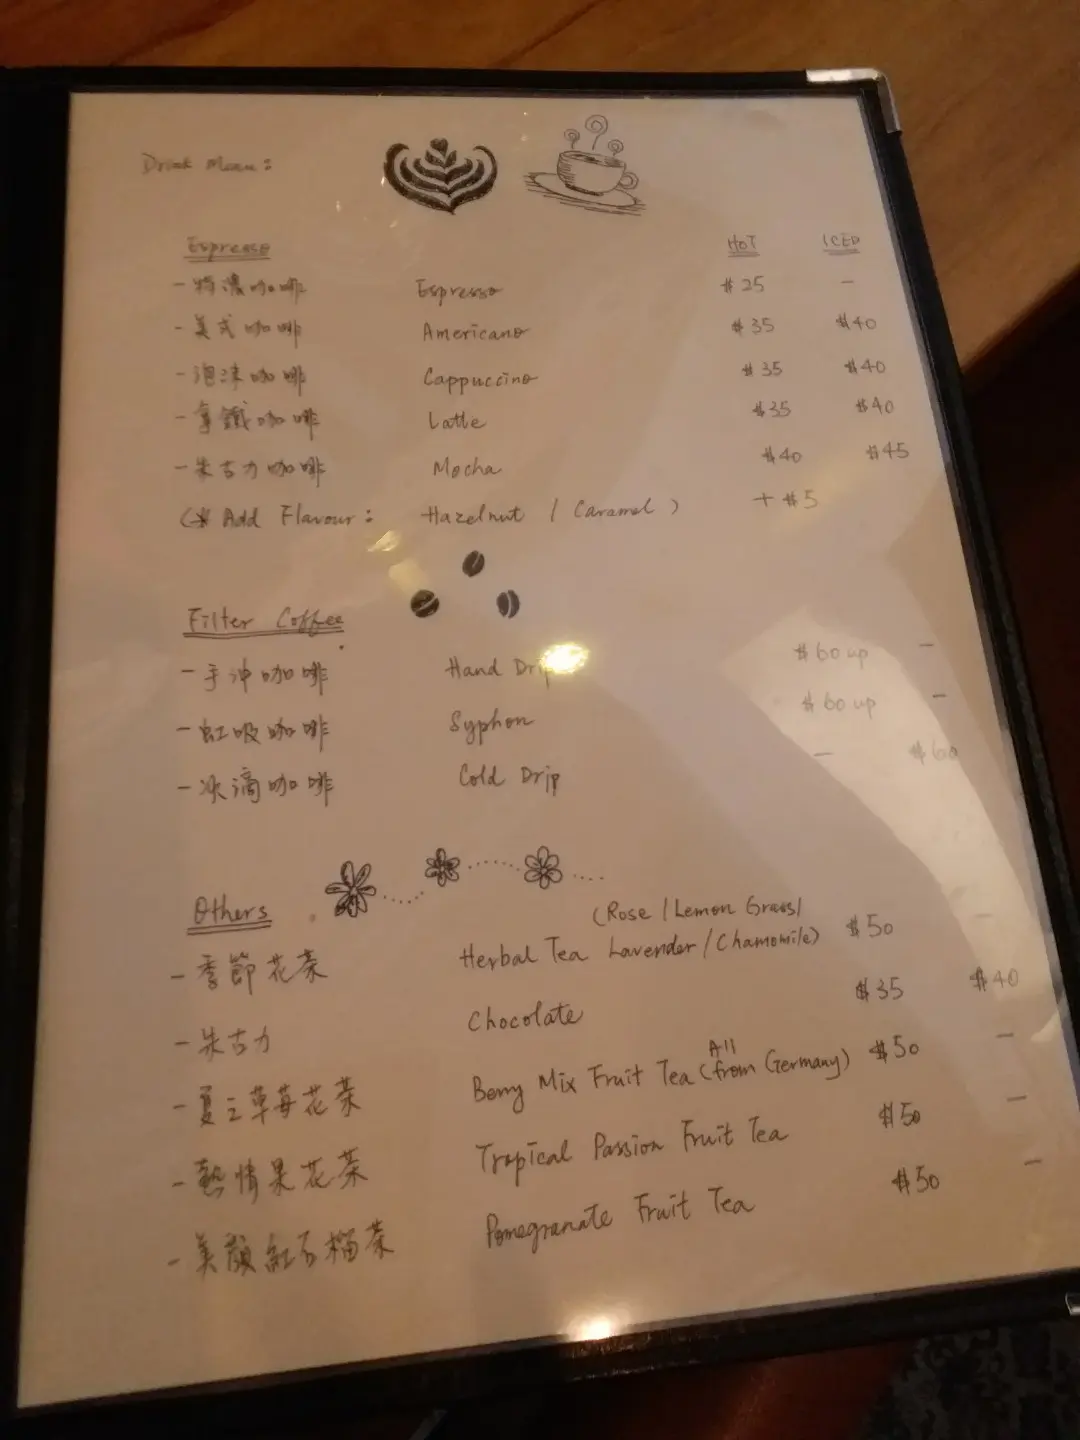 Drink Menu:
Espresso HOT ICED
- 特濃咖啡 Espresso $25 -
- 美式咖啡 Americano $35 $40
- 泡沫咖啡 Cappuccino $35 $40
- 拿鐵咖啡 Latte $35 $40
- 朱古力咖啡 Mocha $40 $45
(* Add Flavour: Hazelnut / Caramel) +$5
Filter Coffee
- 手沖咖啡 Hand Drip $60 up -
- 虹吸咖啡 Syphon $60 up -
- 冰滴咖啡 Cold Drip - $60
Others
(Rose / Lemon Grass/
- 季節花茶 Herbal Tea Lavender / Chamomile) $50 -
- 朱古力 Chocolate $35 $40
All
- 夏之草莓花茶 Berry Mix Fruit Tea (from Germany) $50 -
- 熱情果花茶 Tropical Passion Fruit Tea $50 -
- 美顏紅石榴茶 Pomegranate Fruit Tea $50 -